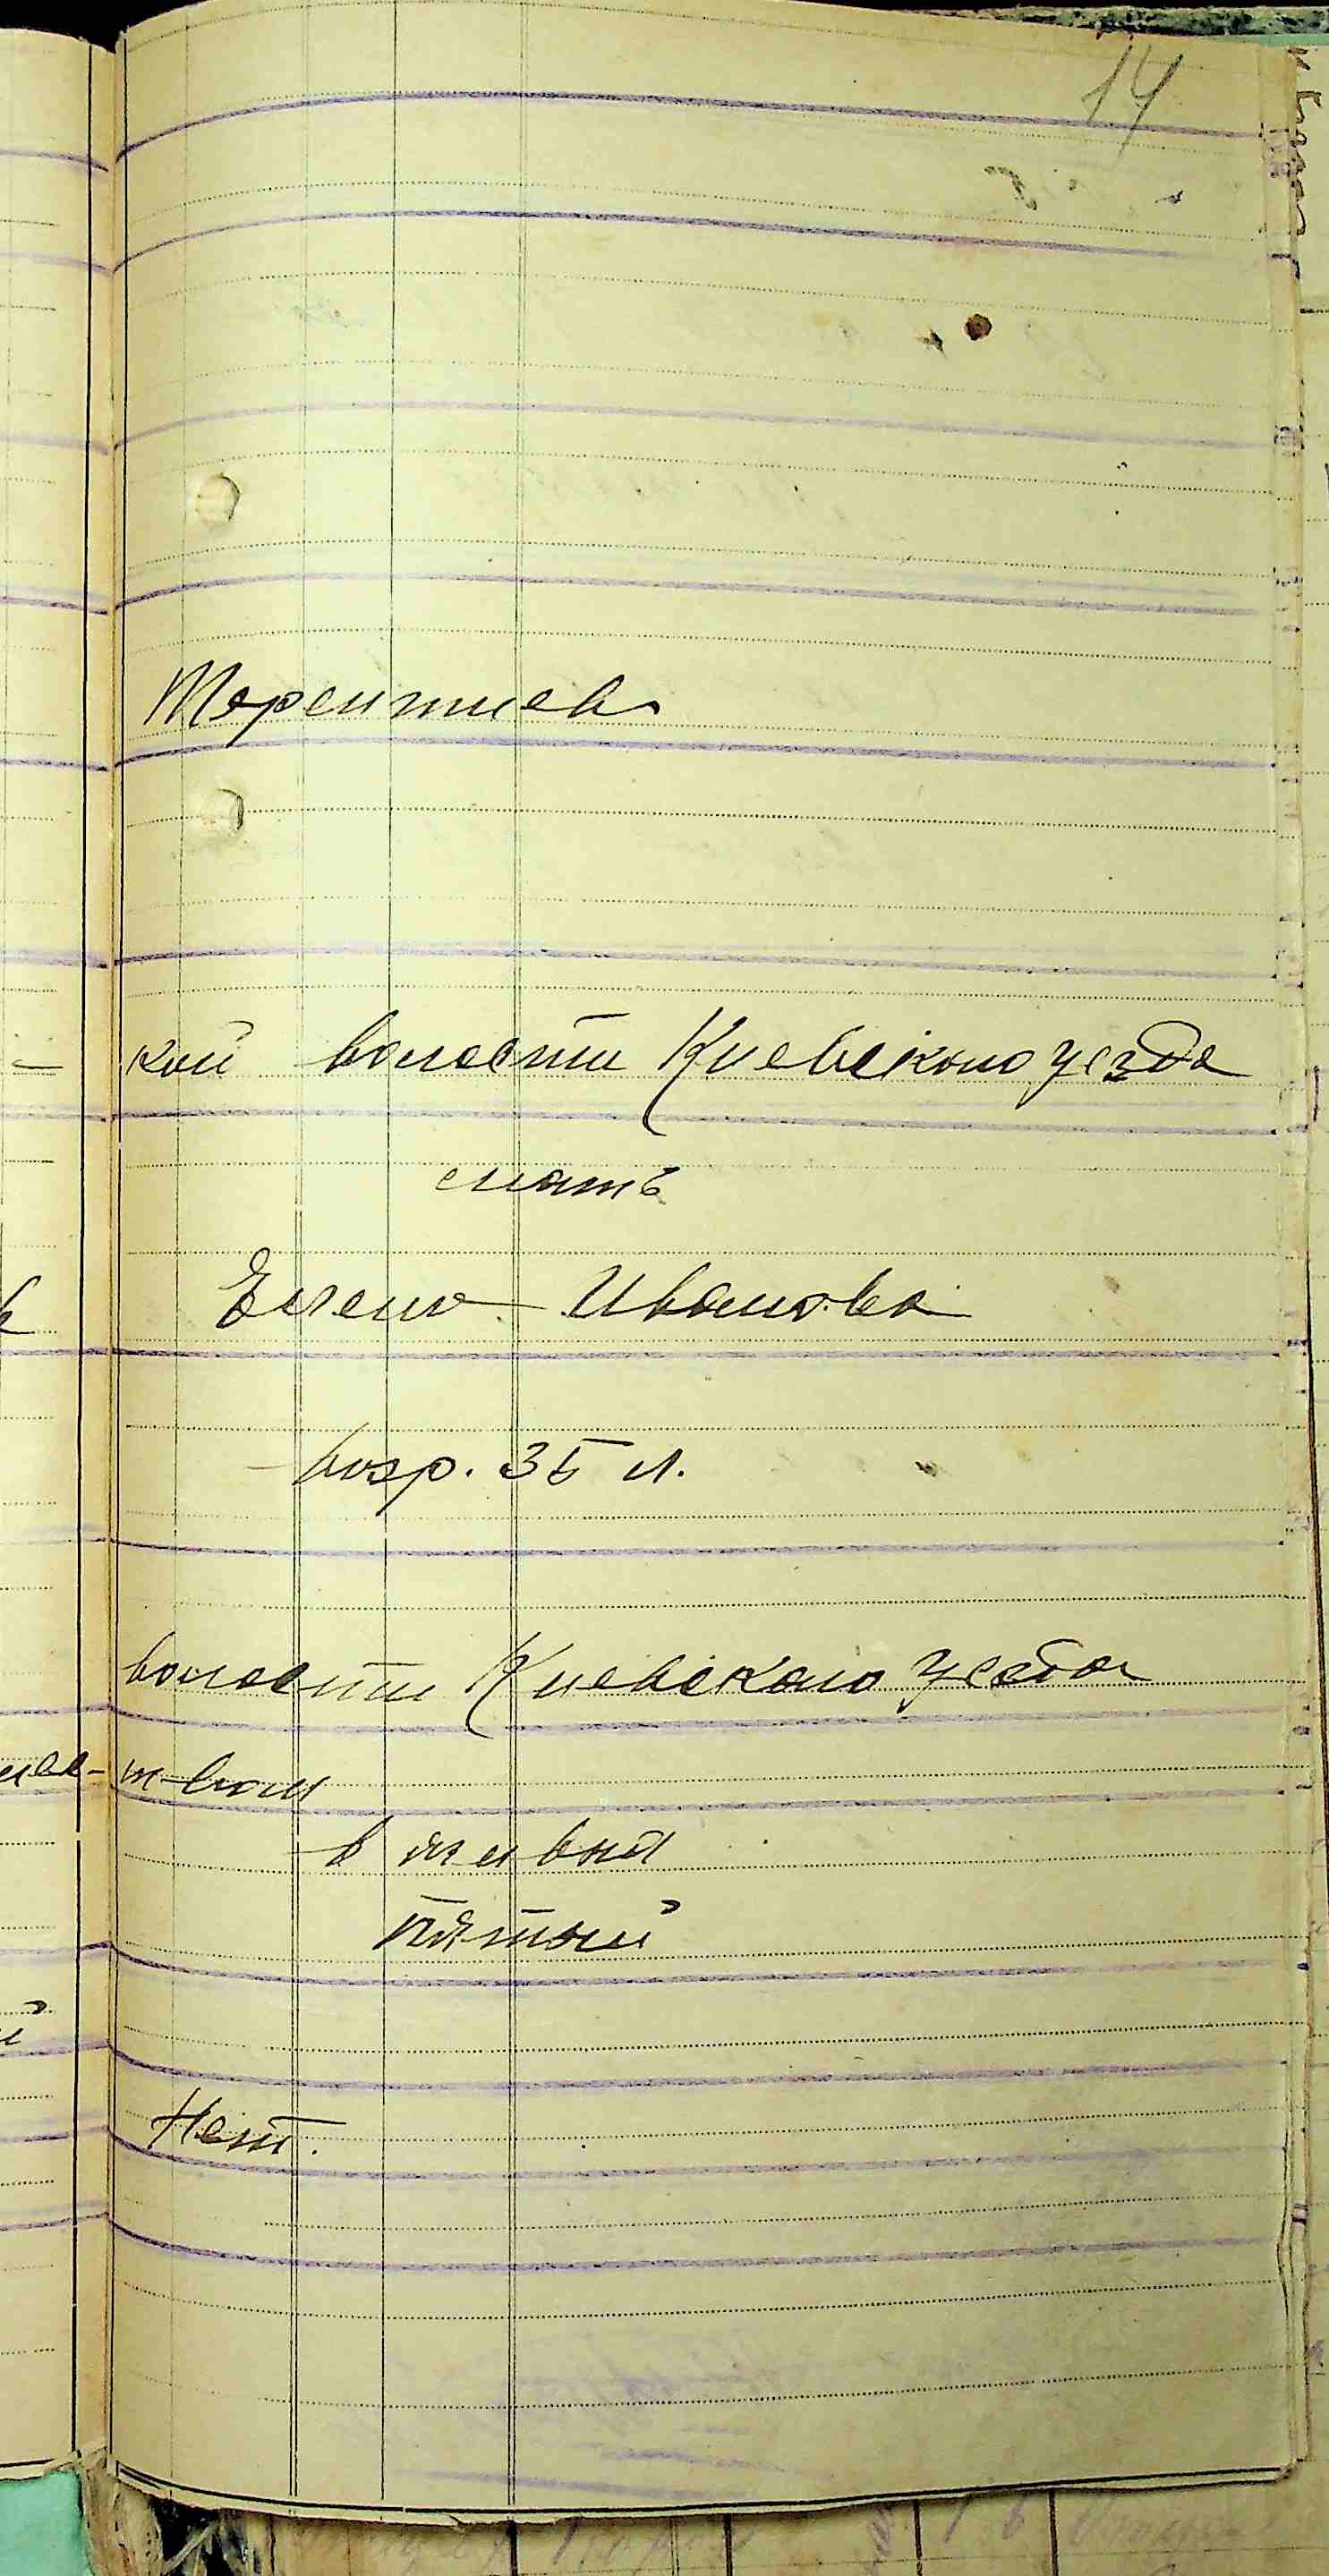 14
Терентиев
кой волости Киевского уезда
мать
Елена Иванова
возр. 35 л.
волости Киевского уезда
т-вом
в первый
пятый
Нет.